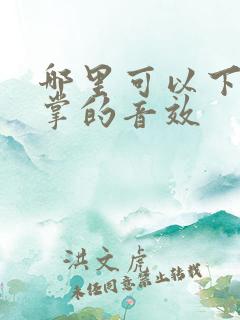 哪里可以下
掌的音效
洪文虎
未经同意禁止转载